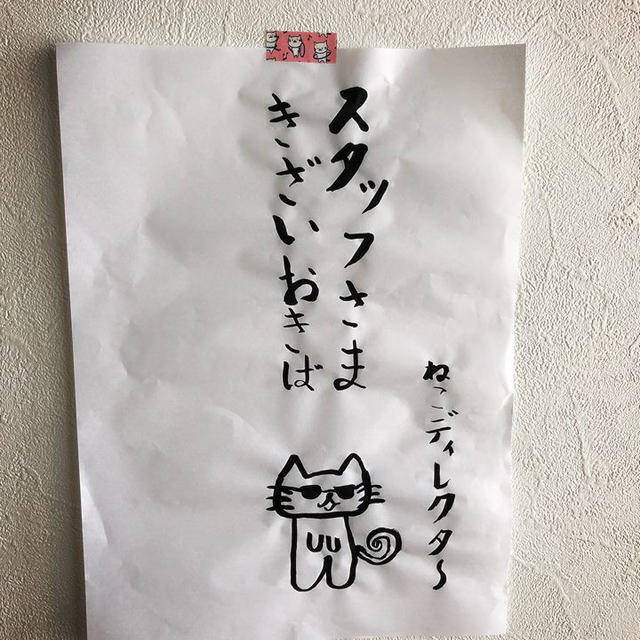 スタッフさま
きざいおきば
ねこディレクタ〜